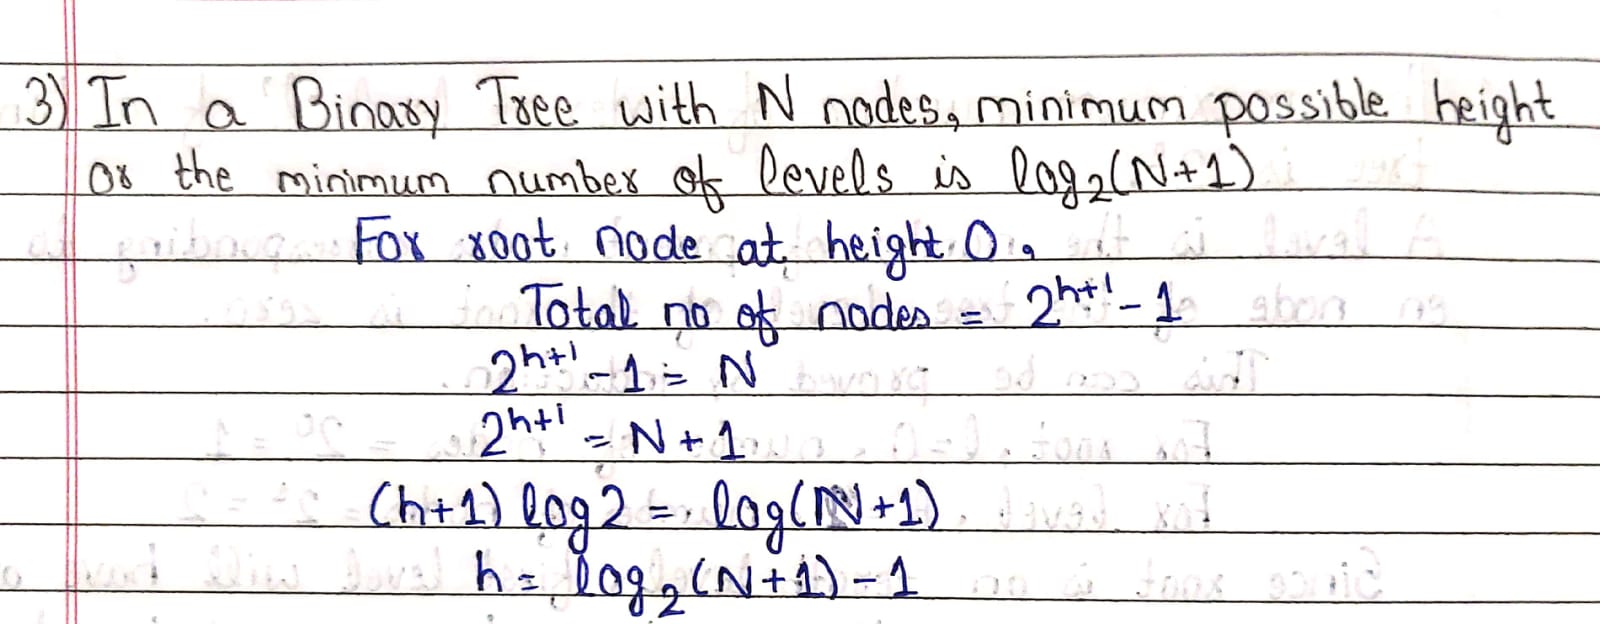 3) In a Binary Tree with N nodes, minimum possible height
or the minimum number of levels is log₂(N+1)
For root node at height 0,
Total no of nodes = 2ʰ⁺¹ - 1
2ʰ⁺¹ - 1 = N
2ʰ⁺¹ = N + 1
(h+1) log 2 = log(N+1)
h = log₂(N+1) - 1